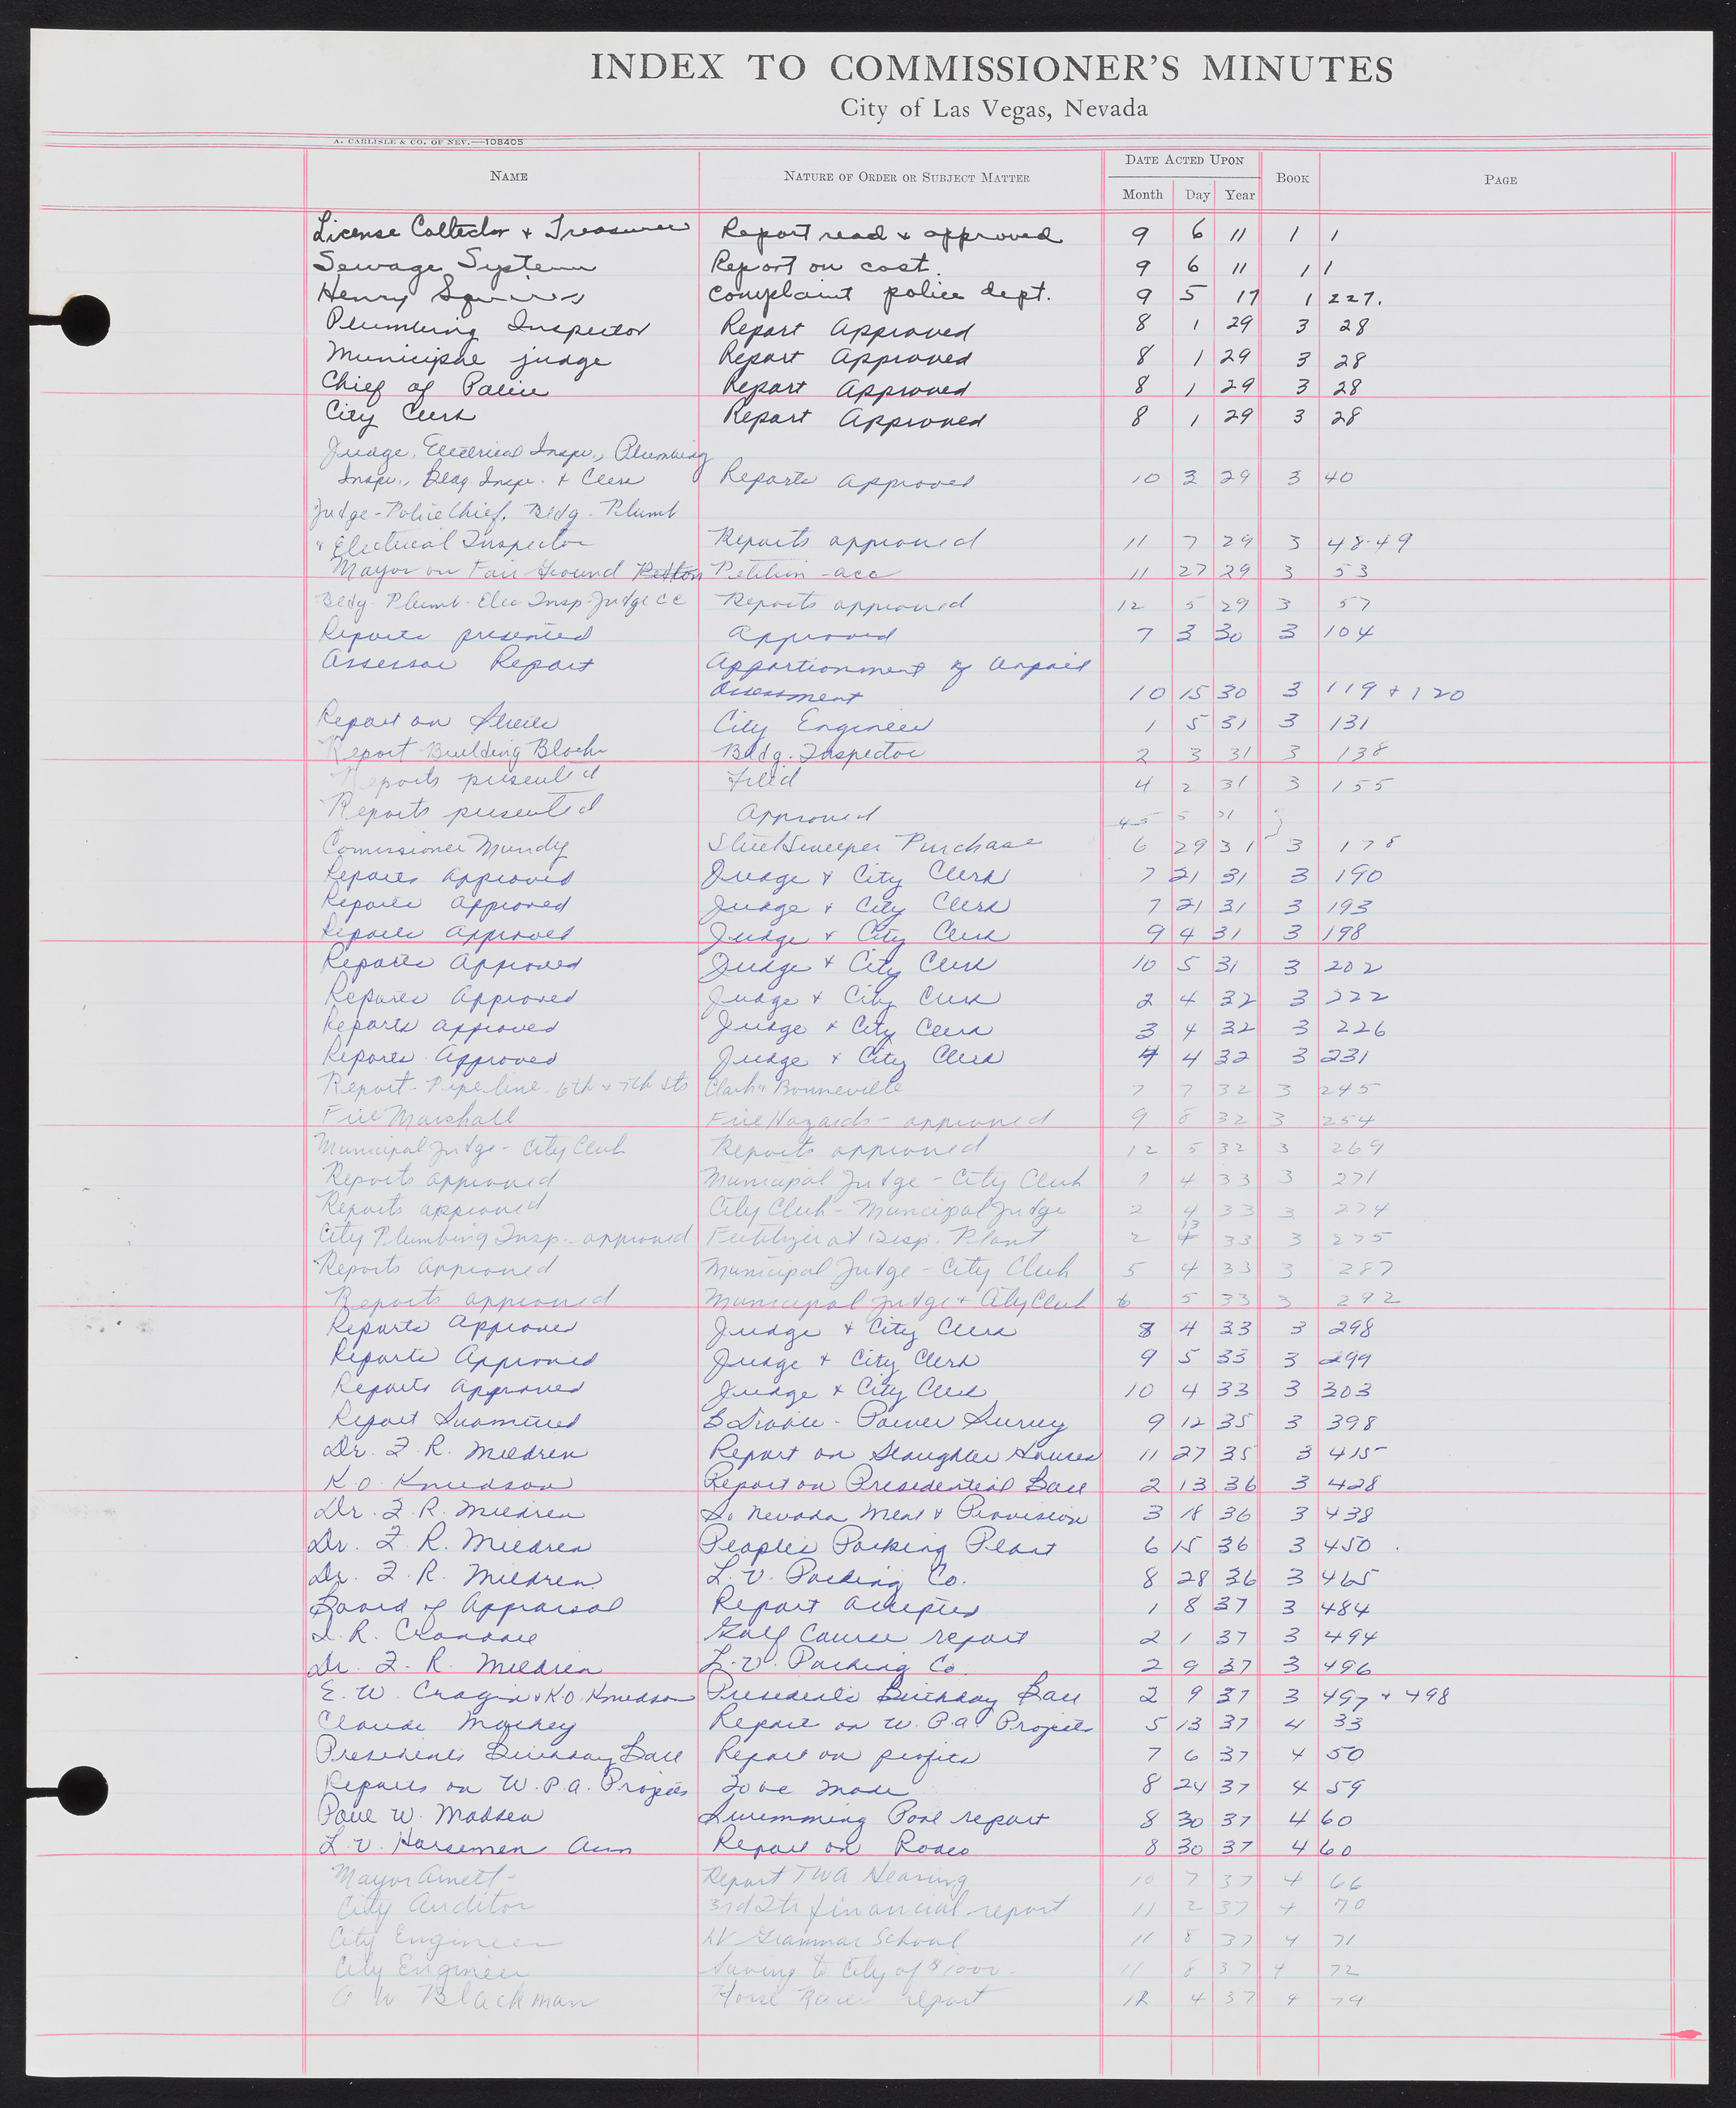 INDEX TO COMMISSIONER'S MINUTES
City of Las Vegas, Nevada
A. CARLISLE & CO. OF NEV.—108405
NAME NATURE OF ORDER OR SUBJECT MATTER DATE ACTED UPON BOOK PAGE
Month Day Year
License Collector + Treasurer Report read & approved 9 6 11 1 1
Sewage System Report on cost. 9 6 11 1 1
Henry Squires Complaint police dept. 9 5 17 1 227.
Plumbing Inspector Report Approved 8 1 29 3 28
Municipal judge Report Approved 8 1 29 3 28
Chief of Police Report Approved 8 1 29 3 28
City Clerk Report Approved 8 1 29 3 28
Judge, Electrical Inspr., Plumbing
Inspr., Bldg Inspr. + Clerk Reports approved 10 3 29 3 40
Judge-Police Chief, Bldg-Plumb
& Electrical Inspector Reports approved 11 7 29 3 48-49
Mayor on Fair Ground Petition - acc 11 27 29 3 53
Bldg-Plumb-Elec Insp-Judge CC Reports approved 12 5 29 3 57
Reports presented Approved 7 3 30 3 104
Assessor Report Apportionment of unpaid
assessment 10 15 30 3 119 + 120
Report on Streets City Engineer 1 5 31 3 131
Report Building Blocks Bldg. Inspector 2 3 31 3 138
Reports presented Filed 4 2 31 3 155
Reports presented Approved 5 31
Comissioner Mundy Street Sweeper Purchase 6 29 31 3 178
Reports approved Judge + City Clerk 7 21 31 3 190
Reports approved Judge + City Clerk 7 21 31 3 193
Reports approved Judge + City Clerk 9 4 31 3 198
Reports approved Judge + City Clerk 10 5 31 3 202
Reports Approved Judge + City Clerk 2 4 32 3 222
Reports approved Judge + City Clerk 3 4 32 3 226
Reports approved Judge + City Clerk 4 4 32 3 231
Report-Pipeline-6th & 7th Sts Clark & Bonneville 7 7 32 3 245
Fire Marshall Fire Hazards - approved 9 8 32 3 254
Municipal Judge - City Clerk Reports approved 12 5 32 3 269
Reports approved Municipal Judge - City Clerk 1 4 33 3 271
Reports approved City Clerk - Municipal Judge 2 4 33 3 274
City Plumbing Insp.- approved Fertilizer at Disp. Plant 2 13 33 3 275
Reports Approved Municipal Judge - City Clerk 5 4 33 3 287
Reports approved Municipal Judge + City Clerk 6 5 33 3 292
Reports approved Judge + City Clerk 8 4 33 3 298
Reports Approved Judge + City Clerk 9 5 33 3 299
Reports approved Judge + City Clerk 10 4 33 3 303
Report Submitted Power Survey 9 12 35 3 398
Dr. F. R. Mildren Report on Slaughter Houses 11 27 35 3 415
K.O. Knudson Report on Presidential Ball 2 13 36 3 428
Dr. F. R. Mildren So Nevada Meat & Provision 3 18 36 3 438
Dr. F. R. Mildren Peoples Packing Plant 6 15 36 3 450
Dr. F. R. Mildren L. V. Packing Co. 8 28 36 3 465
Board of Appraisal Report accepted 1 8 37 3 484
Golf Course report 2 1 37 3 494
Dr. F. R. Mildren L. V. Packing Co. 2 9 37 3 496
E. W. Cragin & K.O. Knudson Presidents Birthday Ball 2 9 37 3 497 + 498
Claude Mackey Report on W.P.A. Projects 5 13 37 4 33
Presidents Birthday Ball Report on profits 7 6 37 4 50
Reports on W.P.A. Projects To be made 8 24 37 4 59
Paul W. Madsen Swimming Pool report 8 30 37 4 60
L. V. Horsemen Assn Report on Rodeo 8 30 37 4 60
Mayor Arnett- Report TWA Hearing 10 7 37 4 66
City Auditor 3rd Qtr financial report 11 2 37 4 70
City Engineer LV Grammar School 11 8 37 4 71
City Engineer Saving to City of $1000- 11 8 37 4 72
A W Blackman Horse Races report 12 4 37 4 74